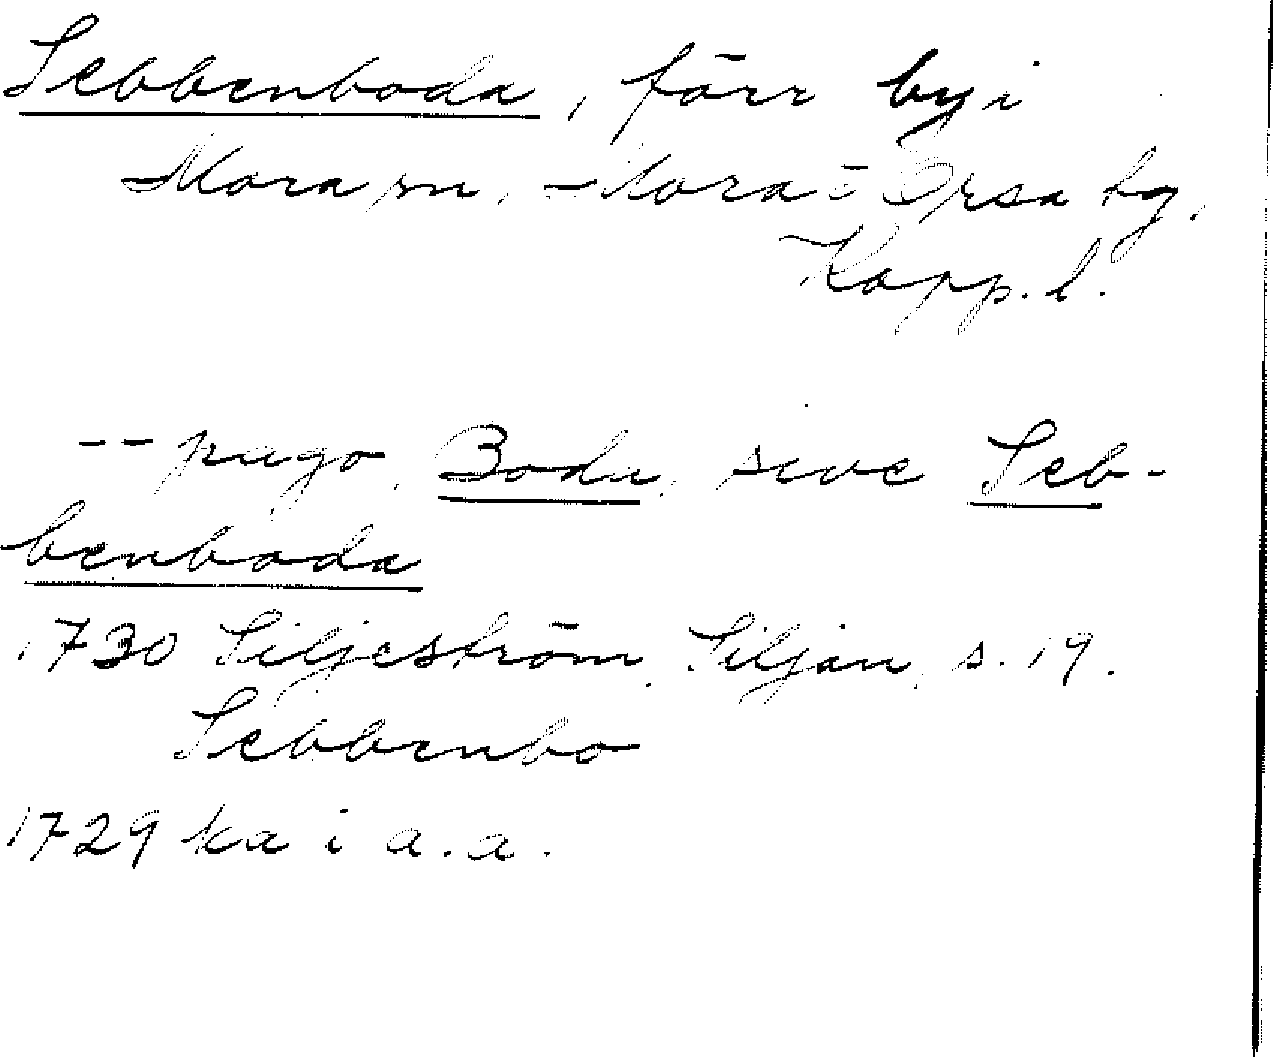 Sebbenboda, förr by i
Mora sn, Mora o Orsa tg,
Kopp. l.
-- pago, Bodu, sive Seb-
benboda
1730 Siljeström, Siljan, s. 19.
Sebbenbo
1729 ka i a.a.